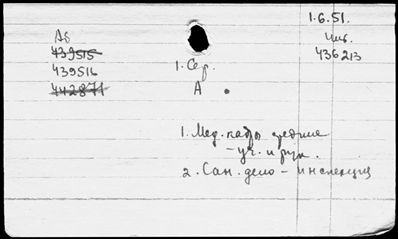 Аб
439515
439516
442871
1.6.51.
Инв.
436213
1. Сер.
А
1. Мед. кадры средние
- уч. и рук.
2. Сан. дело - инспекция